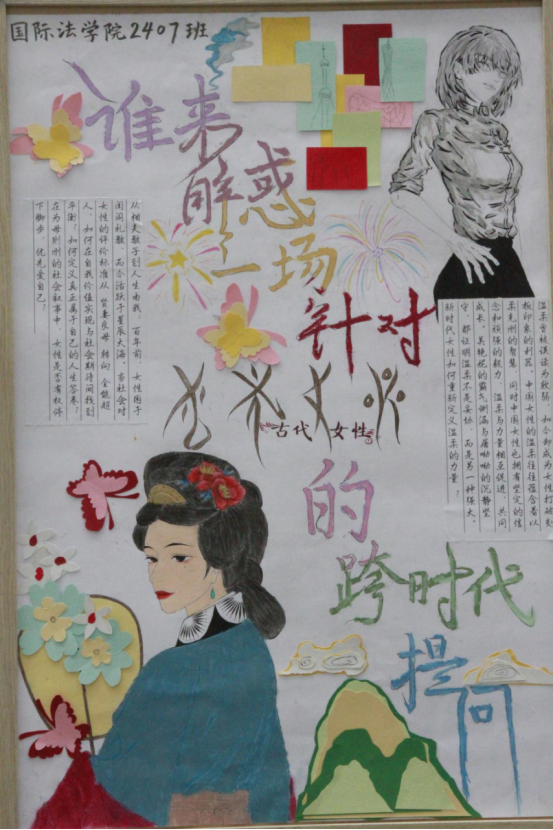 国际法学院2407班
谁来
解惑
一场
针对
古代 女性
的
跨时代
提问
从相夫教子到人生由我，百年前，女性囿于
闺阁礼教，而今活跃于星辰大海。当社会对
女性的评价标准从贤妻良母转向全能超
人，如何在自我价值实现与社会期待间找到
平衡？如何定义真正属于自己的人生答卷？
在为母则刚的社会叙事中，女性是否有权停
下脚步，优先爱自己？
温柔曾被误读为软弱，如今却成为女性打破刻
板印象的利器。中国女性的温柔往往蕴含着以
柔克刚的智慧，同时中国女性也拥有坚定的信
念和顽强的毅力，温柔与力量相互促进、共同
成长。吴艳妮的霸气侧漏与屠呦呦的沉静坚
守，都证明温柔不是妥协，而是另一种强大。
新时代女性如何重新定义温柔的力量？